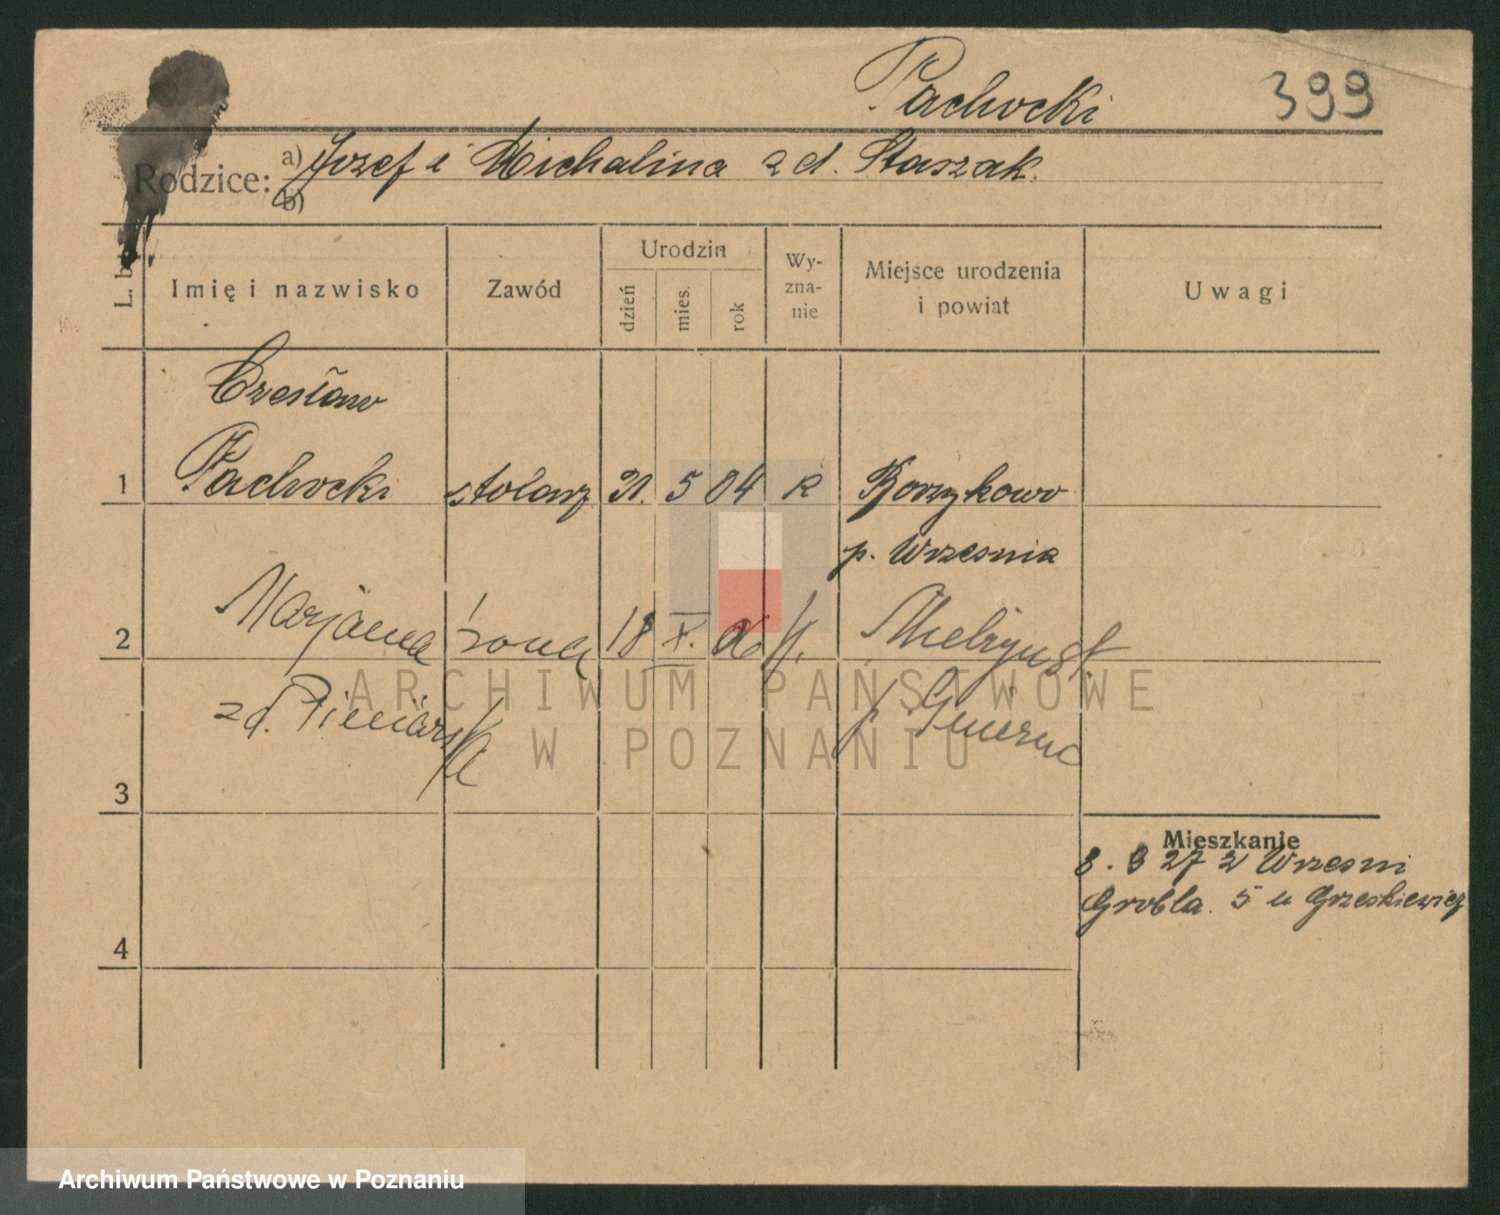 Pachocki 399
Rodzice: a) Józef i Michalina zd. Staszak.
b)
L. b. Imię i nazwisko Zawód Urodzin dzień mies. rok Wy-zna-nie Miejsce urodzenia i powiat Uwagi
Czesław
1 Pachocki stolarz 31. 5 04 R Borzykowo
p. Wrzesnia
2 Marjanna żona 18 X. K.
zd. p. Gniezno
3
ARCHIWUM PAŃSTWOWE
W POZNANIU
Mieszkanie
8. 8 27 z Wrzesni
Grobla. 5 u Grzeskiewicz
4
Archiwum Państwowe w Poznaniu